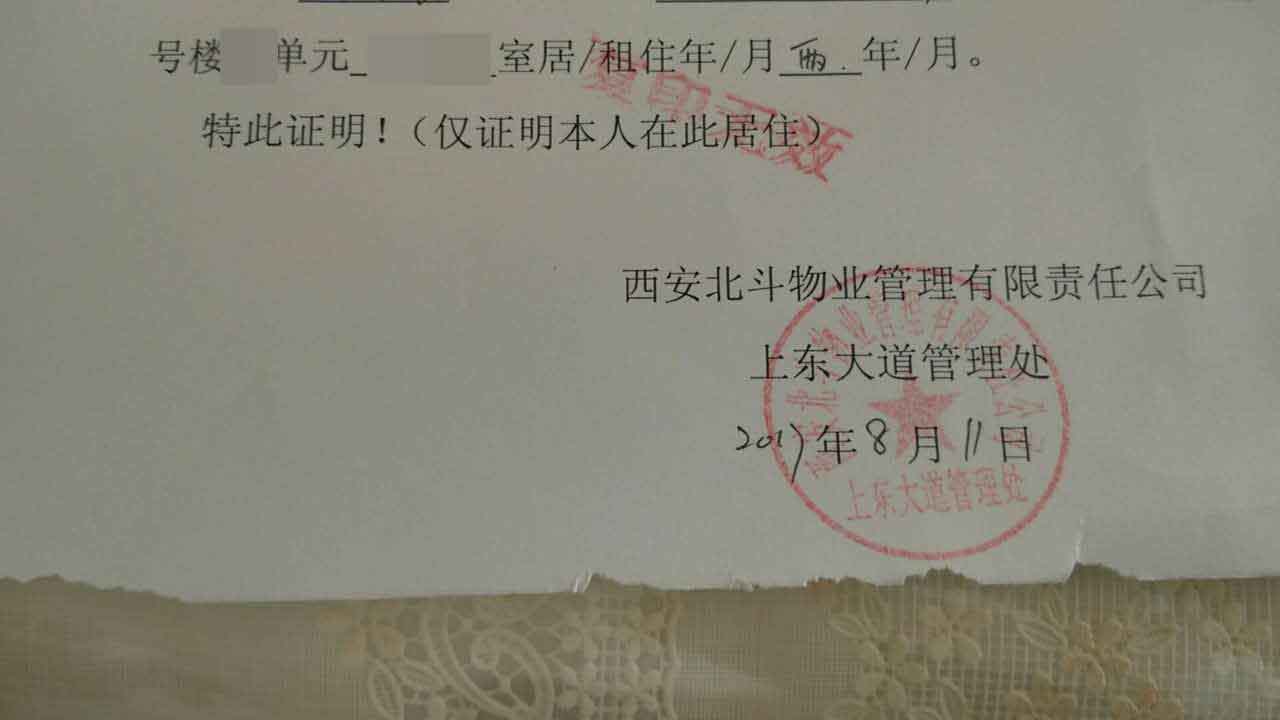 号楼 单元 室居/租住年/月两.年/月。
复印无效
特此证明！（仅证明本人在此居住）
西安北斗物业管理有限责任公司
上东大道管理处
2017年8月11日
上东大道管理处